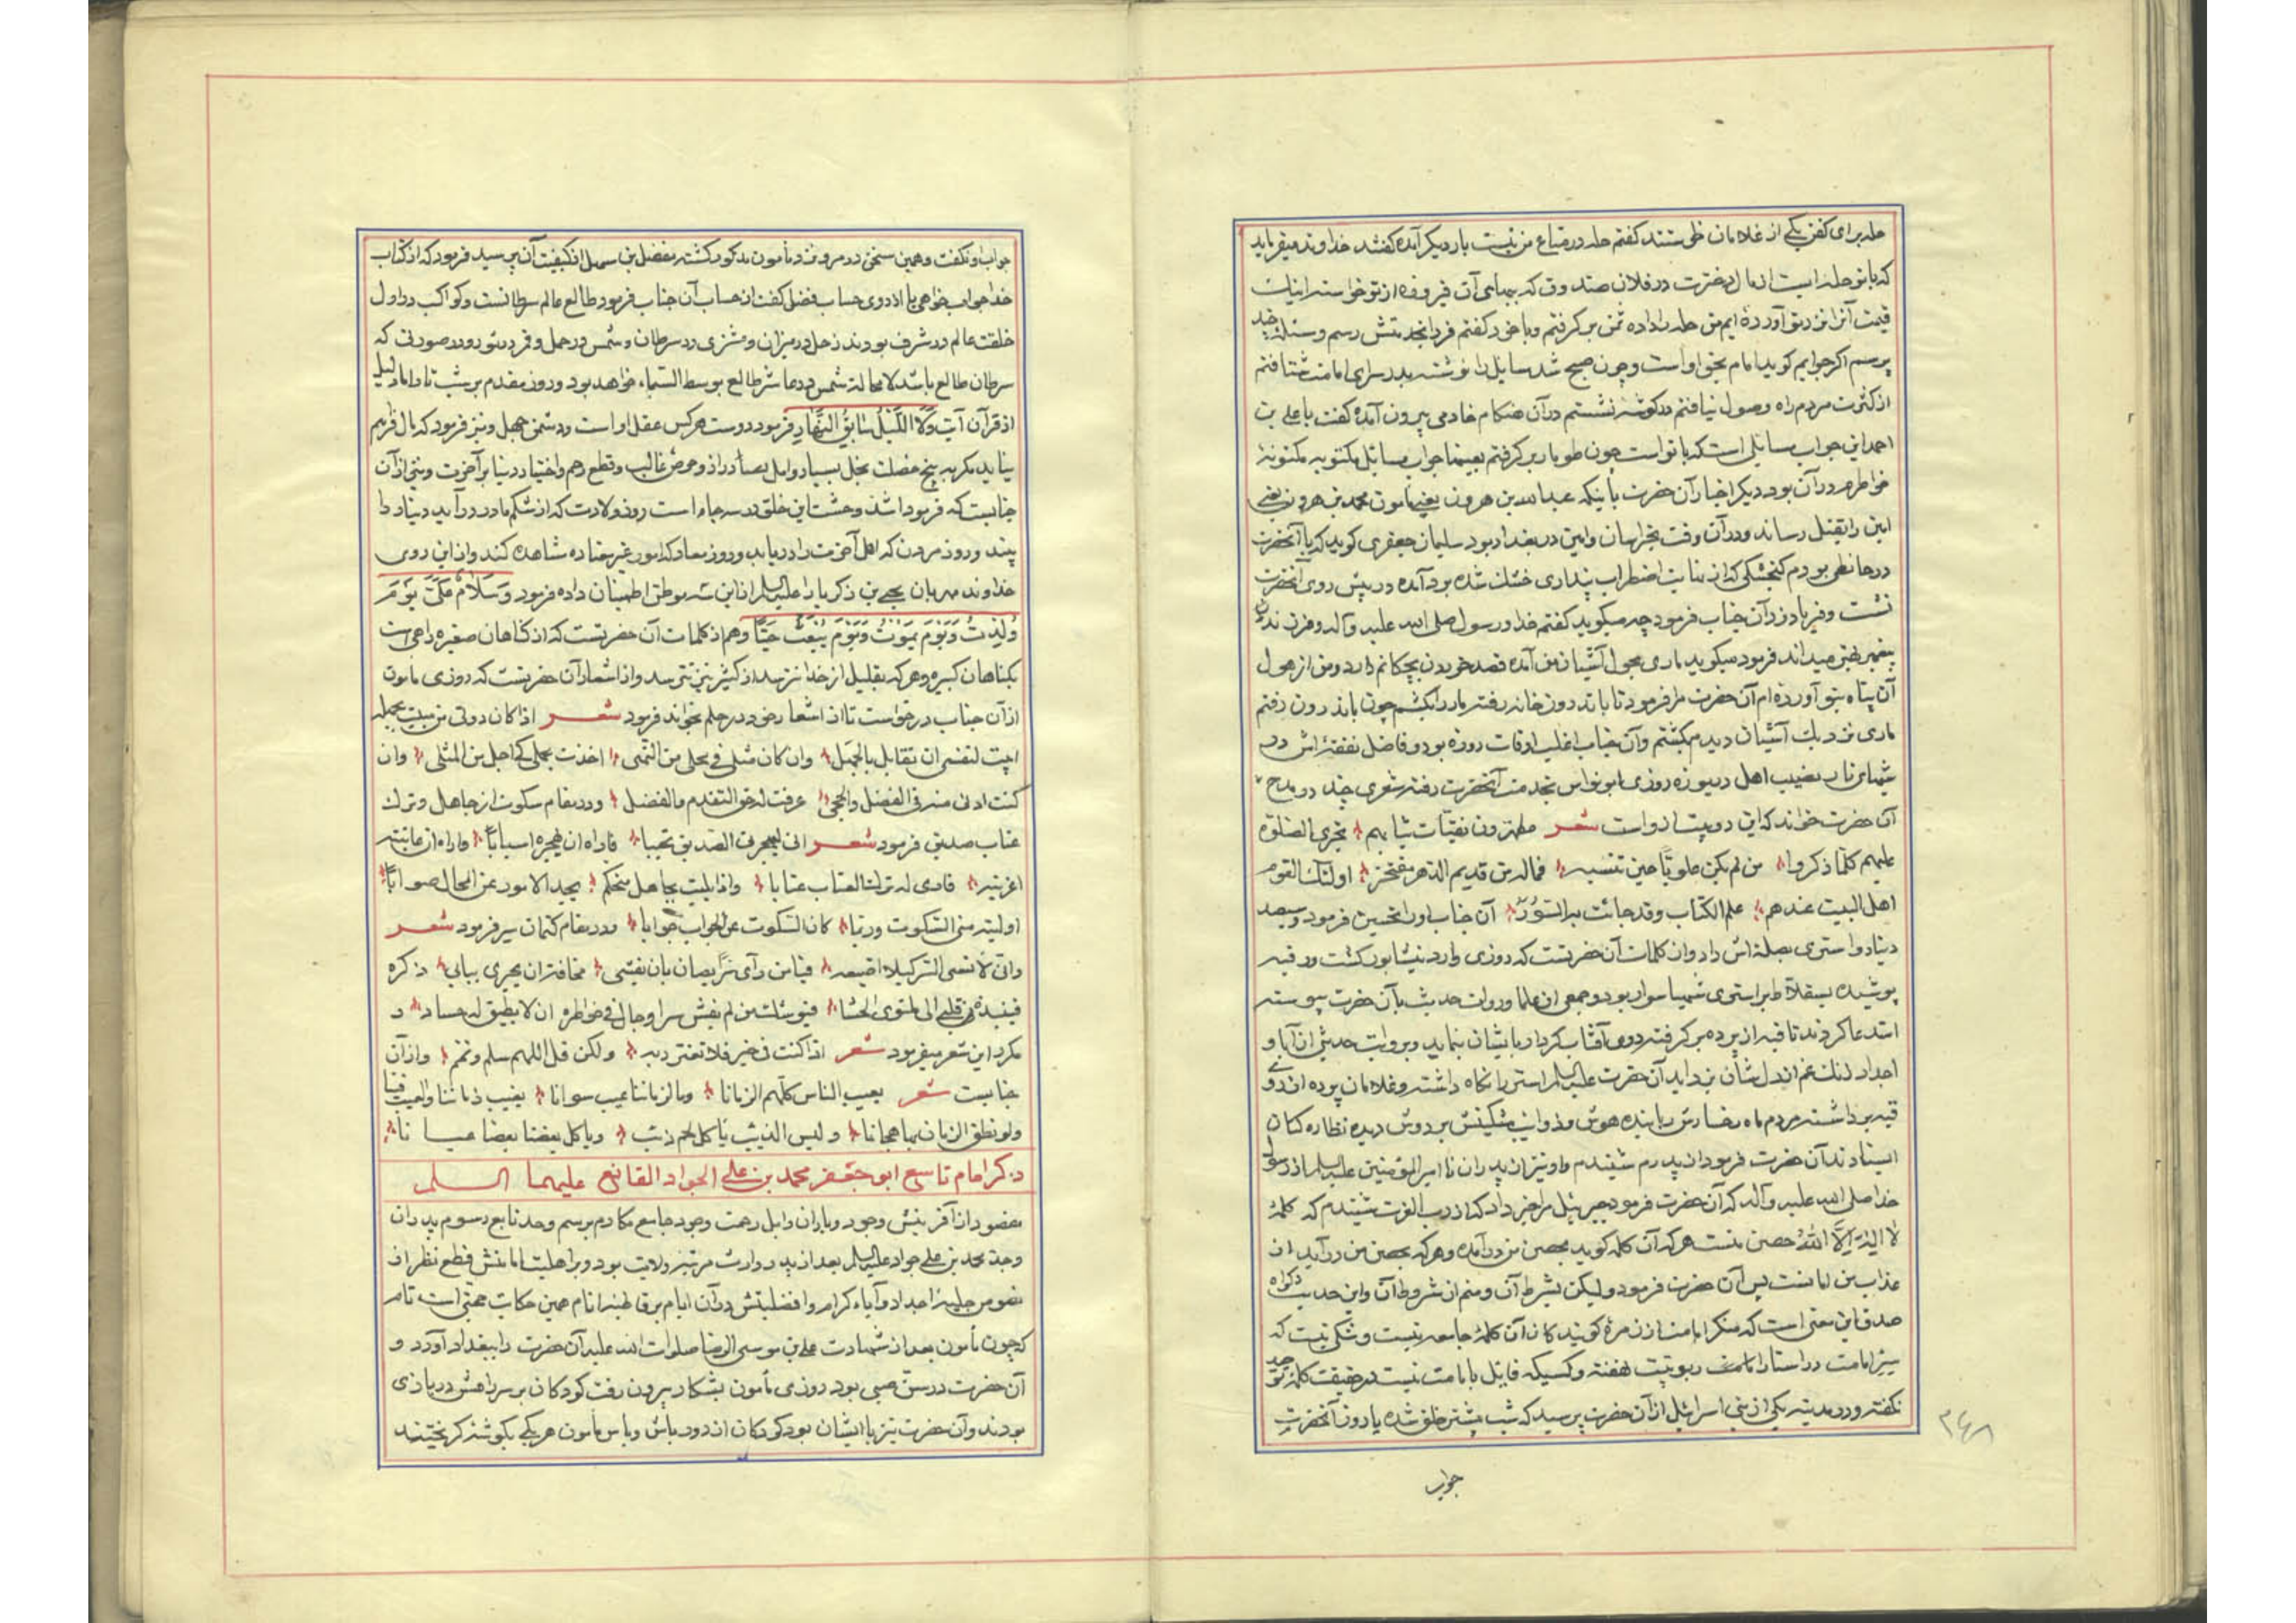 حله برای کفن یکی از غلامان طی ستند کفتم حله در متاع من نیست بار دیکر آمده کفتند خداوند میفرماید
که با تو حله ایست از مال دخترت در فلان صندوق که ببهای آن فیروزه از تو خواسته اینک
قیمت آنرا نزد تو آورده ایم من حله را داده ثمن برکرفتم و با خود کفتم فردا بخدمتش رسم و مسئلهٔ چند
پرسم اکر جوابم کوید امام بحق اوست و چون صبح شد مسایل را نوشته بدر سرای امامت شتافتم
از کثرت مردم راه وصول نیافتم در کوشهٔ نشستم در آن هنکام خادمی بیرون آمده کفت یا علی بن
احمد این جواب مسایلی است که با تو است چون طومار برکرفتم بعینها جواب مسایل مکتوبه مکنونهٔ
خواطرم در آن بود دیکر اخبار آن حضرت باینکه عبدالله بن هرون یعنی مامون محمد بن هرون یعنی
امین را بقتل رساند و در آن وقت بخراسان و امین در بغداد بود سلیمان جعفری کوید که با آنحضرت
در حائطی بودم کنجشکی که از غایت اضطراب پنداری خشک شده بود آمده در پیش روی آنحضرت
نشست و فریاد زد آن جناب فرمود چه میکوید کفتم خدا و رسول صلی الله علیه و آله و فرزندان
پیغمبر بهتر میداند فرمود میکوید ماری بحول آشیان من آمده قصد خوردن بچکانم دارد و من از هول
آن پناه بتو آورده ام آن حضرت مرا فرمود تا باندرون خانه رفته مار را بکشم چون باندرون رفتم
ماری نزدیک آشیان دیدم بکشتم و آن جناب اغلب اوقات روزه بود و فاضل نفقهٔ اش در
شبهای تار نصیب اهل دریوزه روزی ابو نواس بخدمت آنحضرت رفته شعری چند در مدح
آن حضرت خواند که این دو بیت از او است شعر مطهرون نقیات ثیابهم تجری الصلوة
علیهم کلما ذکروا من لم یکن علویا حین تنسبه فماله من قدیم الدهر مفتخر اولئک القوم
اهل البیت عندهم علم الکتاب و قد جائت به السور آن جناب او را تحسین فرمود و سیصد
دینار و استری بصلهٔ اش داد و از کلمات آن حضرتست که روزی وارد نیشابور کشت و در قبه
پوشیده بسقلاط بر استری شهبا سوار بود و جمعی از علما و روات حدیث بآن حضرت پیوسته
استدعا کردند تا قبه از پرده برکرفته روی آفتاب کردار بایشان بنماید و بروایت حدیثی از آبا و
اجداد زنک غم از دل شان بزداید آن حضرت علیه السلم استر را نکاه داشته و غلامان پرده از روی
قبه برداشته مردم ماه رخسارش را بندهٔ هوش و ذوایب مشکینش بر دوش دیده نظاره کنان
ایستادند آن حضرت فرمود از پدرم شنیدم و او نیز از پدران تا امیر المؤمنین علیه السلم از رسول
خدا صلی الله علیه و آله که آن حضرت فرمود جبرئیل مرا خبر داد که از رب العزت شنیدم که کلمهٔ
لا اله الا الله حصن منست هر که آن کلمه کوید بحصن من در آمده و هر که بحصن من در آید از
عذاب من امانست پس آن حضرت فرمود و لیکن بشرط آن و منم از شروط آن و این حدیث دکواه
صدق این معنی است که منکر امامت از زمرهٔ کویندکان آن کلمهٔ جامعه نیست و شکی نیست که
سر امامت در استار ربوبیت نهفته و کسیکه قایل بامامت نیست در حقیقت کلمهٔ توحید
نکفته و در مدینه یکی از بنی اسرائیل از آن حضرت پرسید که شب پیشتر خلق شده یا روز آنحضرت
جواب
۲۴۸
جواب او نکفت و همین سخن در مرو نزد مأمون مذکور کشته فضل بن سهل از کیفیت آن پرسید فرمود که از کتاب
خدا جواب خواهی یا از روی حساب فضل کفت از حساب آن جناب فرمود طالع عالم سرطانست و کواکب در اول
خلقت عالم در شرف بودند زحل در میزان و مشتری در سرطان و شمس در حمل و قمر در ثور و در صورتی که
سرطان طالع باشد لا محاله شمس در عاشر طالع بوسط السماء خواهد بود و روز مقدم بر شب تا دلیل
از قرآن آیت و لا اللیل سابق النهار فرمود دوست هر کس عقل اوست و دشمن جهل و نیز فرمود که مال فراهم
نیاید مکر به پنج خصلت بخل بسیار و امل دراز و حرص غالب و قطع رحم و اختیار دنیا بر آخرت و نیز از آن
جنابست که فرمود اشد وحشت این خلق در سه جاه است روز ولادت که از شکم مادر در آید دنیا را
بیند و روز مردن که اهل آخرت را دریابد و روز معاد که امور غیر معتاده مشاهده کند و از این روی
خداوند مهربان یحیی بن ذکریا را علیه السلم از این سه موطن اطمینان داده فرمود و سلام علی یوم
ولدت و یوم یموت و یوم یبعث حیا و هم از کلمات آن حضرتست که از کناهان صغیره راهی است
بکناهان کبیره و هر که بقلیل از خدا نترسد از کثیر نیز نترسد و از اشعار آن حضرتست که روزی مامون
از آن جناب درخواست تا از اشعار خود در حلم بخواند فرمود شعر اذا کان دونی من بلیت بجهله
ابیت لنفسی ان تقابل بالجهل وان کان مثلی فی محلی من النهی اخذت بحلمی کی اجل من المثلی وان
کنت ادنی منه فی الفضل والحجی عرفت له حق التقدم والفضل و در مقام سکوت از جاهل و ترک
عتاب صدیق فرمود شعر انی لیهجرنی الصدیق تجنبا فاراه ان لهجره اسبابا واراه ان عاتبته
اغریته فاری له ترک العتاب عتابا واذا بلیت بجاهل متحکم یجد الامور من المحال صوابا
اولیته منی السکوت وربما کان السکوت عن الجواب جوابا و در مقام کتمان سر فرمود شعر
وانی لانسی السر کیلا اضیعه فیا من رای سرا یصان بان ینسی مخافة ان یجری ببالی ذکره
فینبذه قلبی الی ملتوی الحشا فیوشک من لم یفش سرا وجال فی خواطره ان لا یطیق له حسا و
مکرر این شعر میفرمود شعر اذا کنت فی خیر فلا تغترر به ولکن قل اللهم سلم وتمم و از آن
جنابست شعر یعیب الناس کلهم الزمانا وما لزماننا عیب سوانا نعیب زماننا والعیب فینا
ولو نطق الزمان بنا هجانا ولیس الذئب یاکل لحم ذئب ویاکل بعضنا بعضا عیانا
ذکر امام تاسع ابو جعفر محمد بن علی الجواد القانع علیهما السلم
مقصود از آفرینش وجود و باران وابل رحمت وجود جامع مکارم برسم وحد تابع رسوم پدران
وجد محمد بن علی جواد علیه السلم بعد از پدر وارث مرتبهٔ ولایت بود و بر اهلیت امامتش قطع نظر از
نصوص جلیهٔ اجداد و آباء کرام و افضلیتش در آن ایام بر قاطبهٔ انام همین حکایت حجتی است تام
که چون مأمون بعد از شهادت علی بن موسی الرضا صلوات الله علیه آن حضرت را ببغداد آورد و
آن حضرت در سن صبی بود روزی مأمون بشکار بیرون رفت کودکان بر سر راهش در بازی
بودند و آن حضرت نیز با ایشان بود کودکان از دور باش و باس مأمون هر یکی بکوشهٔ کریختند